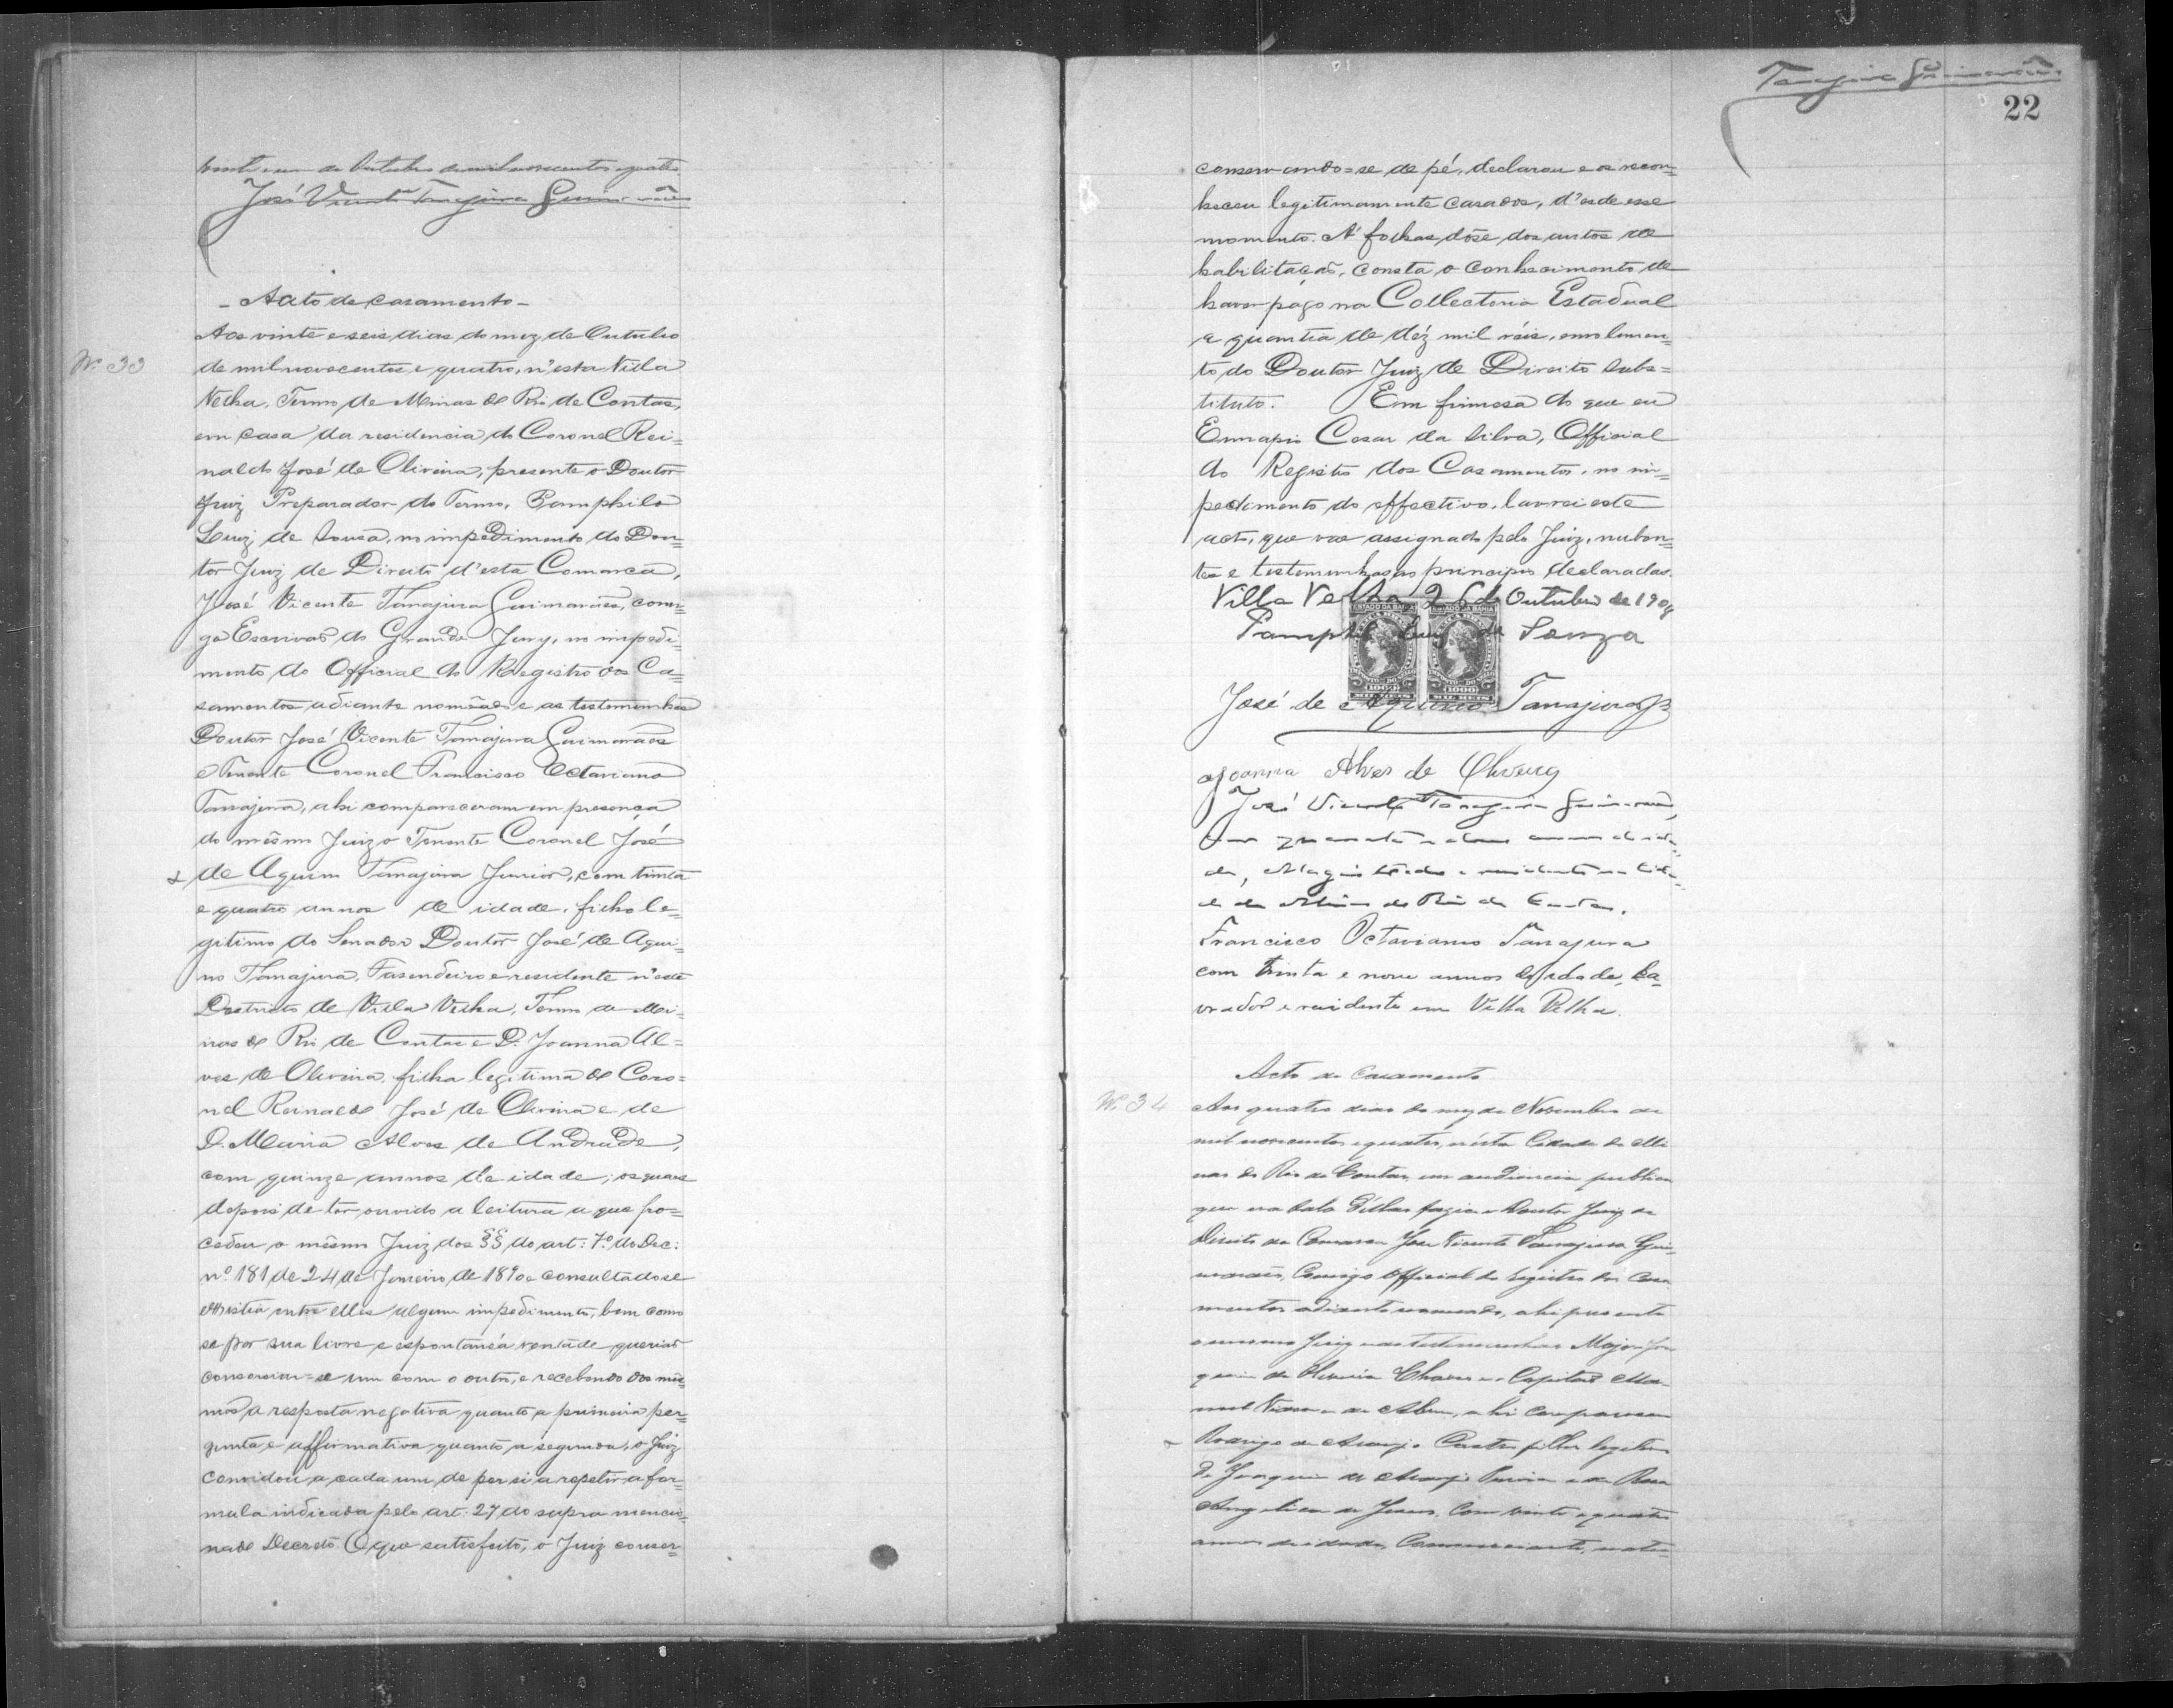 vinte e um de Outubro de mil novecentos e quatro
José Vicente Tanajura Guimarães
- Acto de casamento -
Nº 33
Aos vinte e seis dias do mez de Outubro
de mil novecentos e quatro, n'esta Villa
Velha, Termo de Minas do Rio de Contas,
em casa da residencia do Coronel Rei=
naldo José de Oliveira, presente o Doutor
Juiz Preparador do Termo, Pamphilo
Luiz de Souza, no impedimento do Dou=
tor Juiz de Direito d'esta Comarca,
José Vicente Tanajura Guimarães, comi=
go Escrivão do Grande Jury, no impedi=
mento do Official do Registro dos Ca=
samentos adiante nomeado e as testemunhas
Doutor José Vicente Tanajura Guimarães
e Tenente Coronel Francisco Octaviano
Tanajura, ahi compareceram em presença
do mesmo Juiz o Tenente Coronel José
de Aquino Tanajura Junior, com trinta
e quatro annos de idade, filho le=
gitimo do Senador Doutor José de Aqui=
no Tanajura, Fasendeiro e residente n'este
Destricto de Villa Velha, Termo de Mi=
nas do Rio de Contas e D. Joanna Al=
ves de Oliveira, filha legitima do Coro=
nel Reinaldo José de Oliveira e de
D. Maria Alves de Andrade,
com quinze annos de idade; os quaes
depois de ter ouvido a leitura a que pro=
cedeu o mesmo Juiz dos §§ do art: 7.º do Dec:
nº 181 de 24 de Janeiro de 1890 e consultado se
existia entre elles algum impedimento, bem como
se por sua livre e espontanea vontade queriam
consorciar=se um com o outro, e recebendo dos mes=
mos a resposta negativa quanto a primeira per=
gunta e affirmativa quanto a segunda, o Juiz
convidou a cada um de per si a repetir a for=
mula indicada pelo art: 27 do supra mencio=
nado Decreto. O que satisfeito, o Juiz conser=
Tanajura Guimarães
22
conservando=se de pé, declarou e os recon=
heceu legitimamente casados, d'esde esse
momento. A' folhas dóse dos autos de
habilitação, consta o conhecimento de
haver pago na Collectoria Estadual
a quantia de déz mil réis, emolumen=
to do Doutor Juiz de Direito subs=
tituto. Em firmesa do que eu
Cesar da Silva, Official
do Registro dos Casamentos, no im=
pedimento do effectivo, lavrei este
acto, que vae assignado pelo Juiz, nuben=
tes e testemunhas no principio declaradas.
Villa Velha 26 de Outubro de 1904
Pamphilo Luiz de Souza
ESTADO DA BAHIA ESTADO DA BAHIA
(1000) (1000)
MIL REIS MIL REIS
José de Aquino Tanajura Jr
Joanna Alves de Oliveira
José Vicente Tanajura Guimarães,
com quarenta e annos de ida=
de, Magistrado e residente na Cida=
de de Minas do Rio de Contas.
Francisco Octaviano Tanajura
com trinta e nove annos de idade, la=
vrador e residente em Villa Velha.
Acto de casamento
Nº 34
Aos quatro dias do mez de Novembro de
mil novecentos e quatro, n'esta Cidade de Mi
nas do Rio de Contas, em audiencia publica
que na sala d'ellas fazia o Doutor Juiz de
Direito da Comarca José Vicente Tanajura Gui=
marães, Comigo Official do registro dos Casa
mentos adiante nomeado, ahi presente
o mesmo Juiz e as testemunhas Major Joa
quim de Oliveira Chaves e o Capitão Ma=
noel de Abreu, ahi compareceu
Rodrigo de Araujo Castro filho legitimo
de Joaquim de Araujo e de Rosa
Angelica de Jesus, com vinte e quatro
annos de idade, Commerciante, natu=